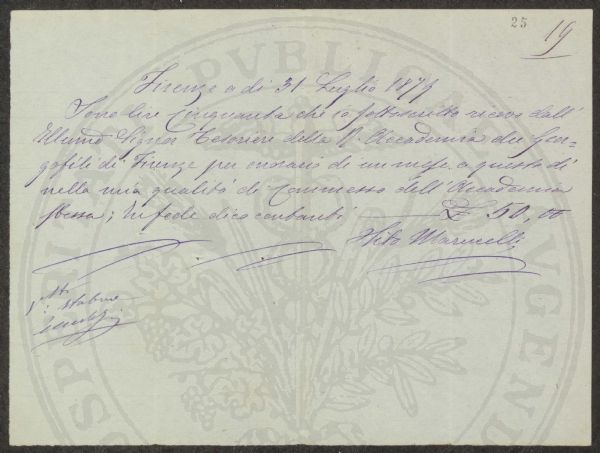 25
19
Firenze a dì 31 Luglio 1879
Sono lire Cinquanta che io sottoscritto ricevo dall'
Illumo Signor Tesoriere della R. Accademia dei Geor=
gofili di Firenze per onorario di un mese a questo dì
nella mia qualità di Commesso dell'Accademia
stessa; In fede dico contanti £ 50,00
Vito Marinelli
PVBLICA
PROSPERI